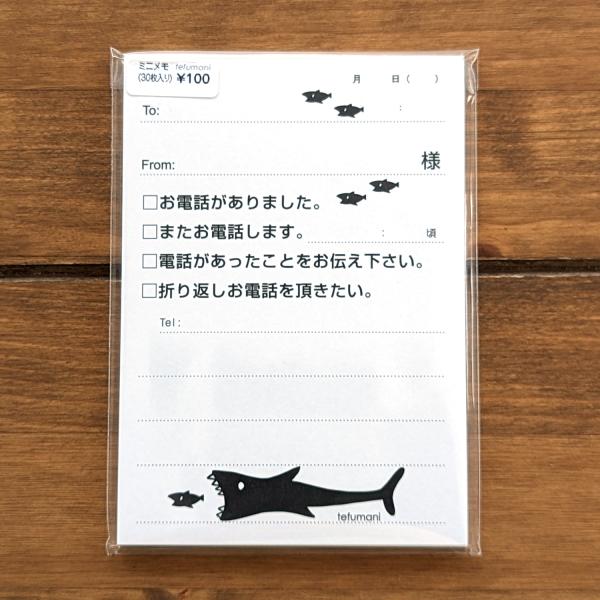 ミニメモ tefumani
(30枚入り) ¥100
月 日 ( )
To: :
From: 様
□お電話がありました。
□またお電話します。 : 頃
□電話があったことをお伝え下さい。
□折り返しお電話を頂きたい。
Tel:
tefumani